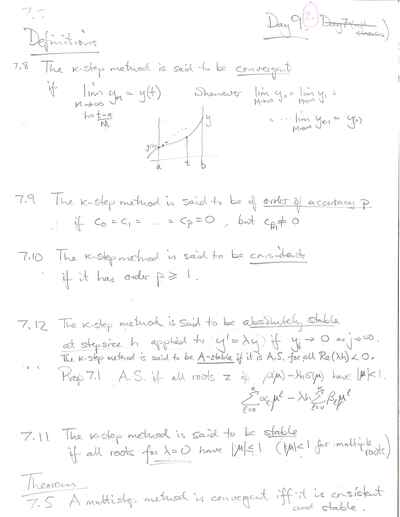 7.
Day 9
Definitions
7.8 The k-step method is said to be convergent
if lim y_M = y(t) whenever lim y_0 = lim y_1 =
M→∞ M→∞ M→∞
h=(t-a)/M = ... lim y_{k-1} = y_0
M→∞
y
a t b
7.9 The k-step method is said to be of order of accuracy p
if c_0 = c_1 = ... = c_p = 0, but c_{p+1} ≠ 0
7.10 The k-step method is said to be consistent
if it has order p ≥ 1.
7.12 The k-step method is said to be absolutely stable
at stepsize h applied to y' = λy if y_j → 0 as j → ∞.
The k-step method is said to be A-stable if it is A.S. for all Re(λh) < 0.
Prop 7.1 A.S. if all roots of ρ(μ) - λhσ(μ) have |μ| < 1.
∑ α_ℓ μ^ℓ - λh ∑ β_ℓ μ^ℓ
7.11 The k-step method is said to be stable
if all roots for λ=0 have |μ| ≤ 1 (|μ| < 1 for multiple
roots)
Theorem
7.5 A multistep method is convergent iff it is consistent
and stable.